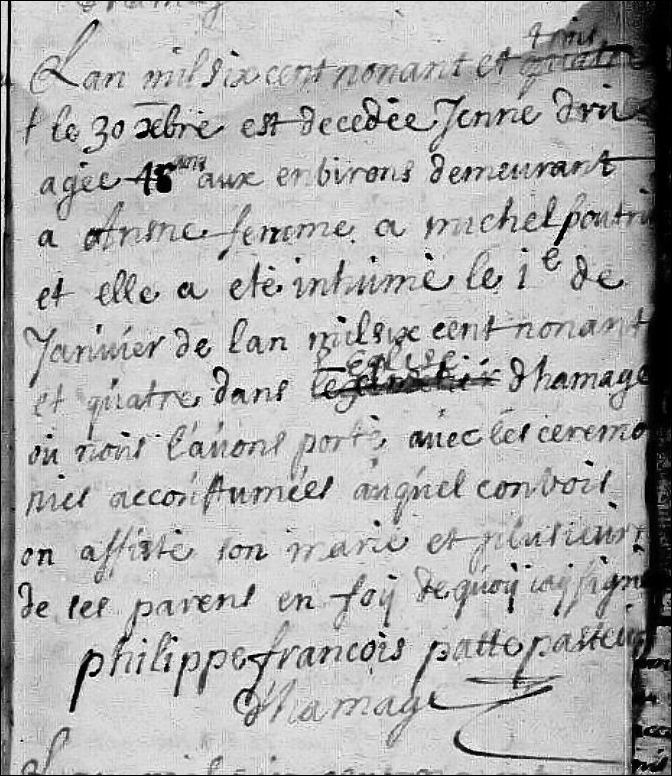 Lan mil six cent nonant et trois
t le 30 xbre est decedée Jenne dri
agée 45 ans aux enbirons demeurant
a femme a michel poutr
et elle a eté inhumé le 1e de
Janvier de lan mil six cent nonant
et quatre dans l'Eglise dhamage
où nous l'auons porté auec les ceremo
nies accoustumées auquel convois
on assisté son marie et plusieurs
de ses parens en foÿ de quoÿ iaÿ signé
philippe francois patte pasteur
d'hamage